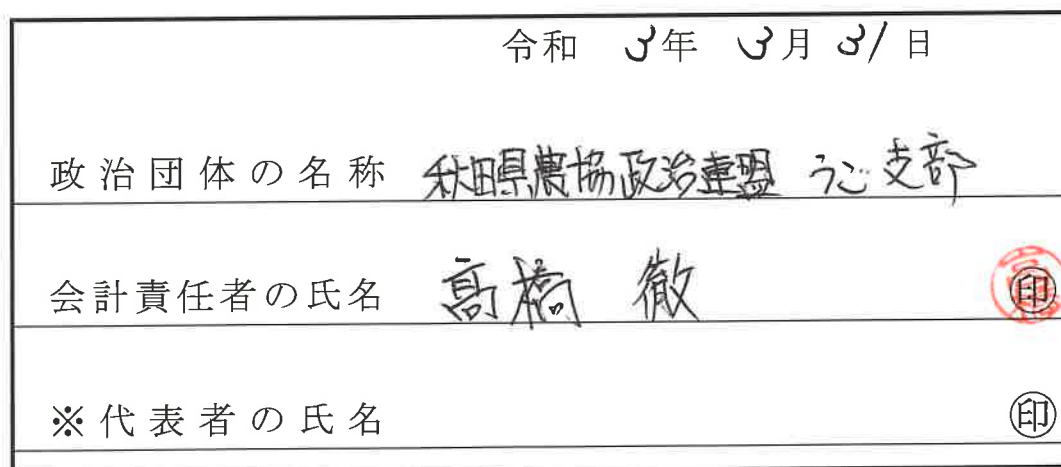 令和 3年 3月 31日
政治団体の名称 秋田県農協政治連盟 うご支部
会計責任者の氏名 髙橋 徹 ㊞
※代表者の氏名 ㊞